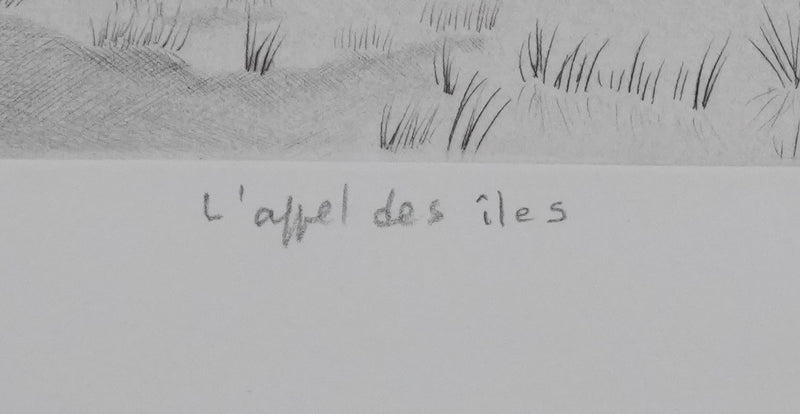 L'appel des îles